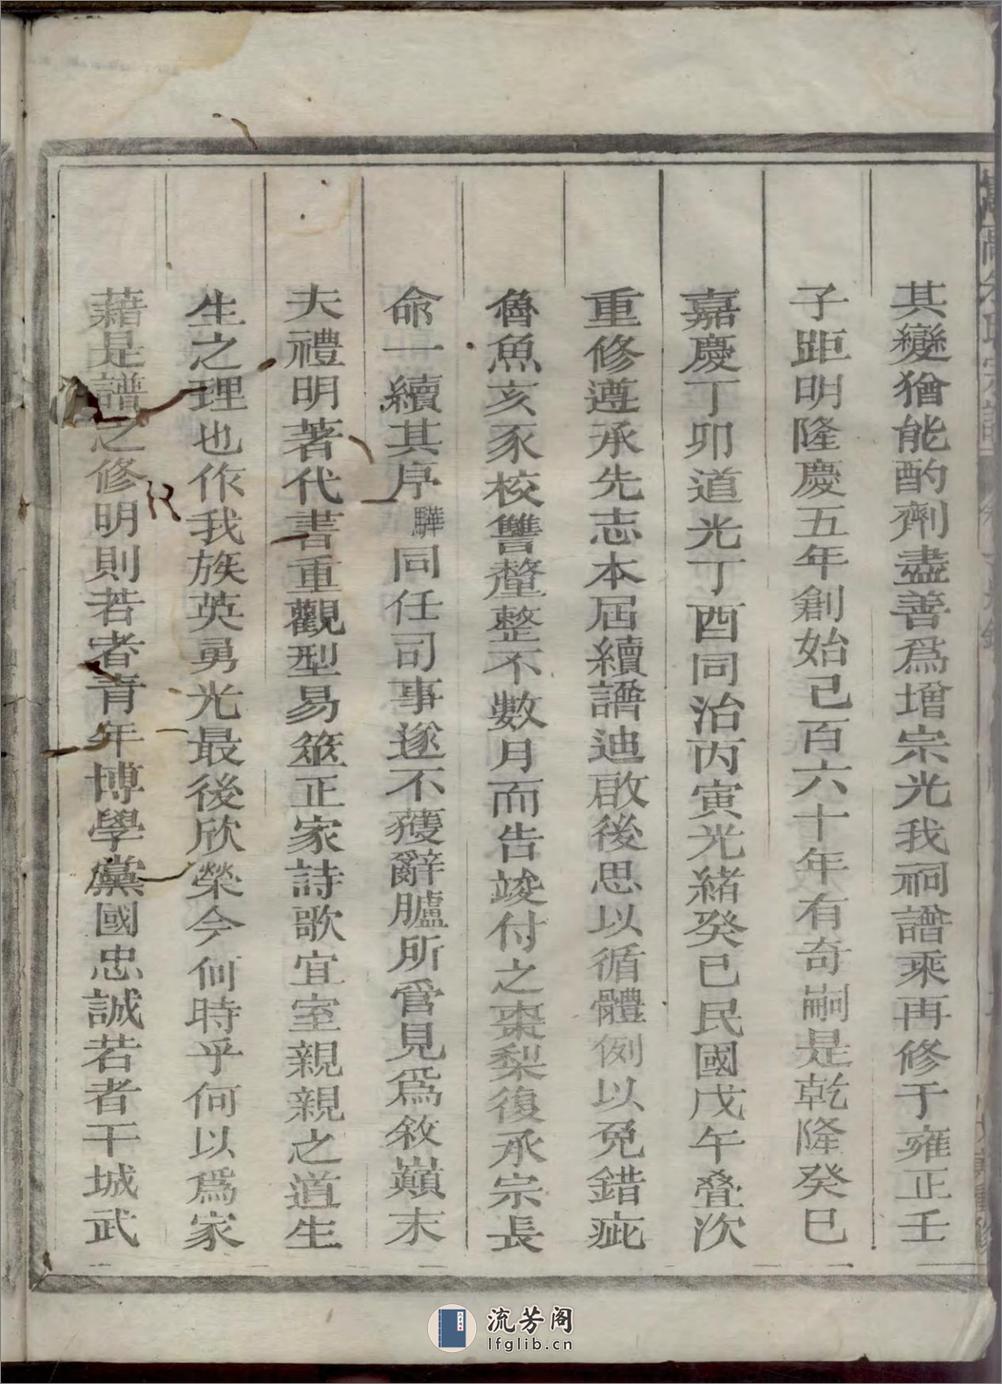 其變猶能酌劑盡善爲增宗光我祠譜乘再修于雍正壬
子距明隆慶五年創始已百六十年有奇嗣是乾隆癸巳
嘉慶丁卯道光丁酉同治丙寅光緒癸巳民國戊午叠次
重修遵承先志本屆續譜迪啟後思以循體例以免錯疵
魯魚亥豕校讐釐整不數月而告竣付之棗梨復承宗長
命一續其序驊同任司事遂不獲辭臚所嘗見爲敘巔末
夫禮明著代書重觀型易筮正家詩歌宜室親親之道生
生之理也作我族英勇光最後欣榮今何時乎何以爲家
藉是譜之修明則若者青年博學黨國忠誠若者干城武
流芳阁
lfglib.cn